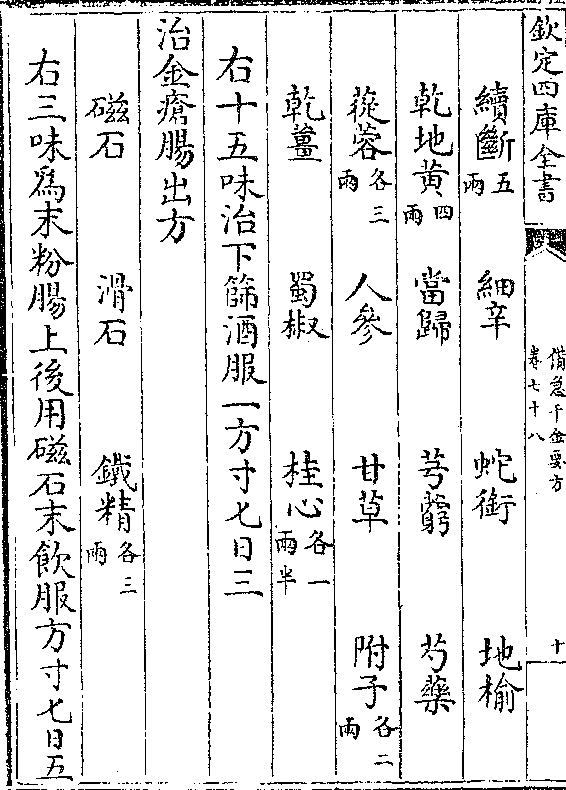 欽定四庫全書
備急千金要方
卷七十八
十
續斷五兩 細辛 蛇銜 地榆
乾地黃四兩 當歸 芎藭 芍藥
蓯蓉各三兩 人參 甘草 附子各二兩
乾薑 蜀椒 桂心各一兩半
右十五味治下篩酒服一方寸匕日三
治金瘡腸出方
磁石 滑石 鐵精各三兩
右三味為末粉腸上後用磁石末飲服方寸匕日五